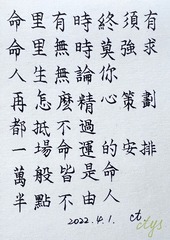 命里有時終須有
命里無時莫強求
人生無論你
再怎麼精心策劃
都抵不過
一場命運的安排
萬般皆是命
半點不由人
2022.4.1. ct
ctys